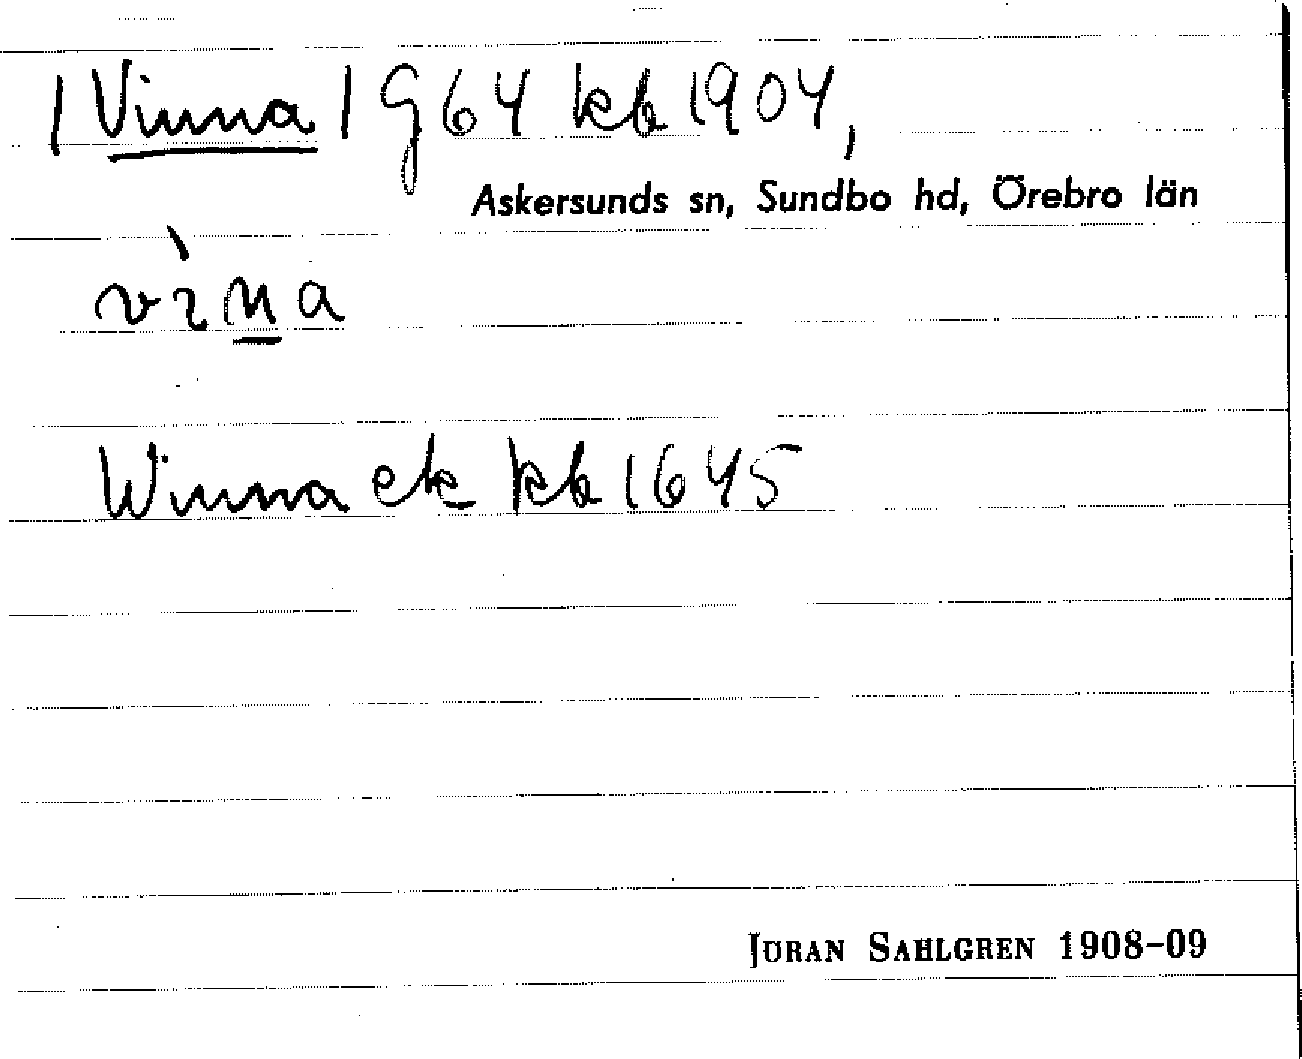 | Vinna | G64 kb 1904,
Askersunds sn, Sundbo hd, Örebro län
vìna
Winna ek kb 1645
JÖRAN SAHLGREN 1908-09